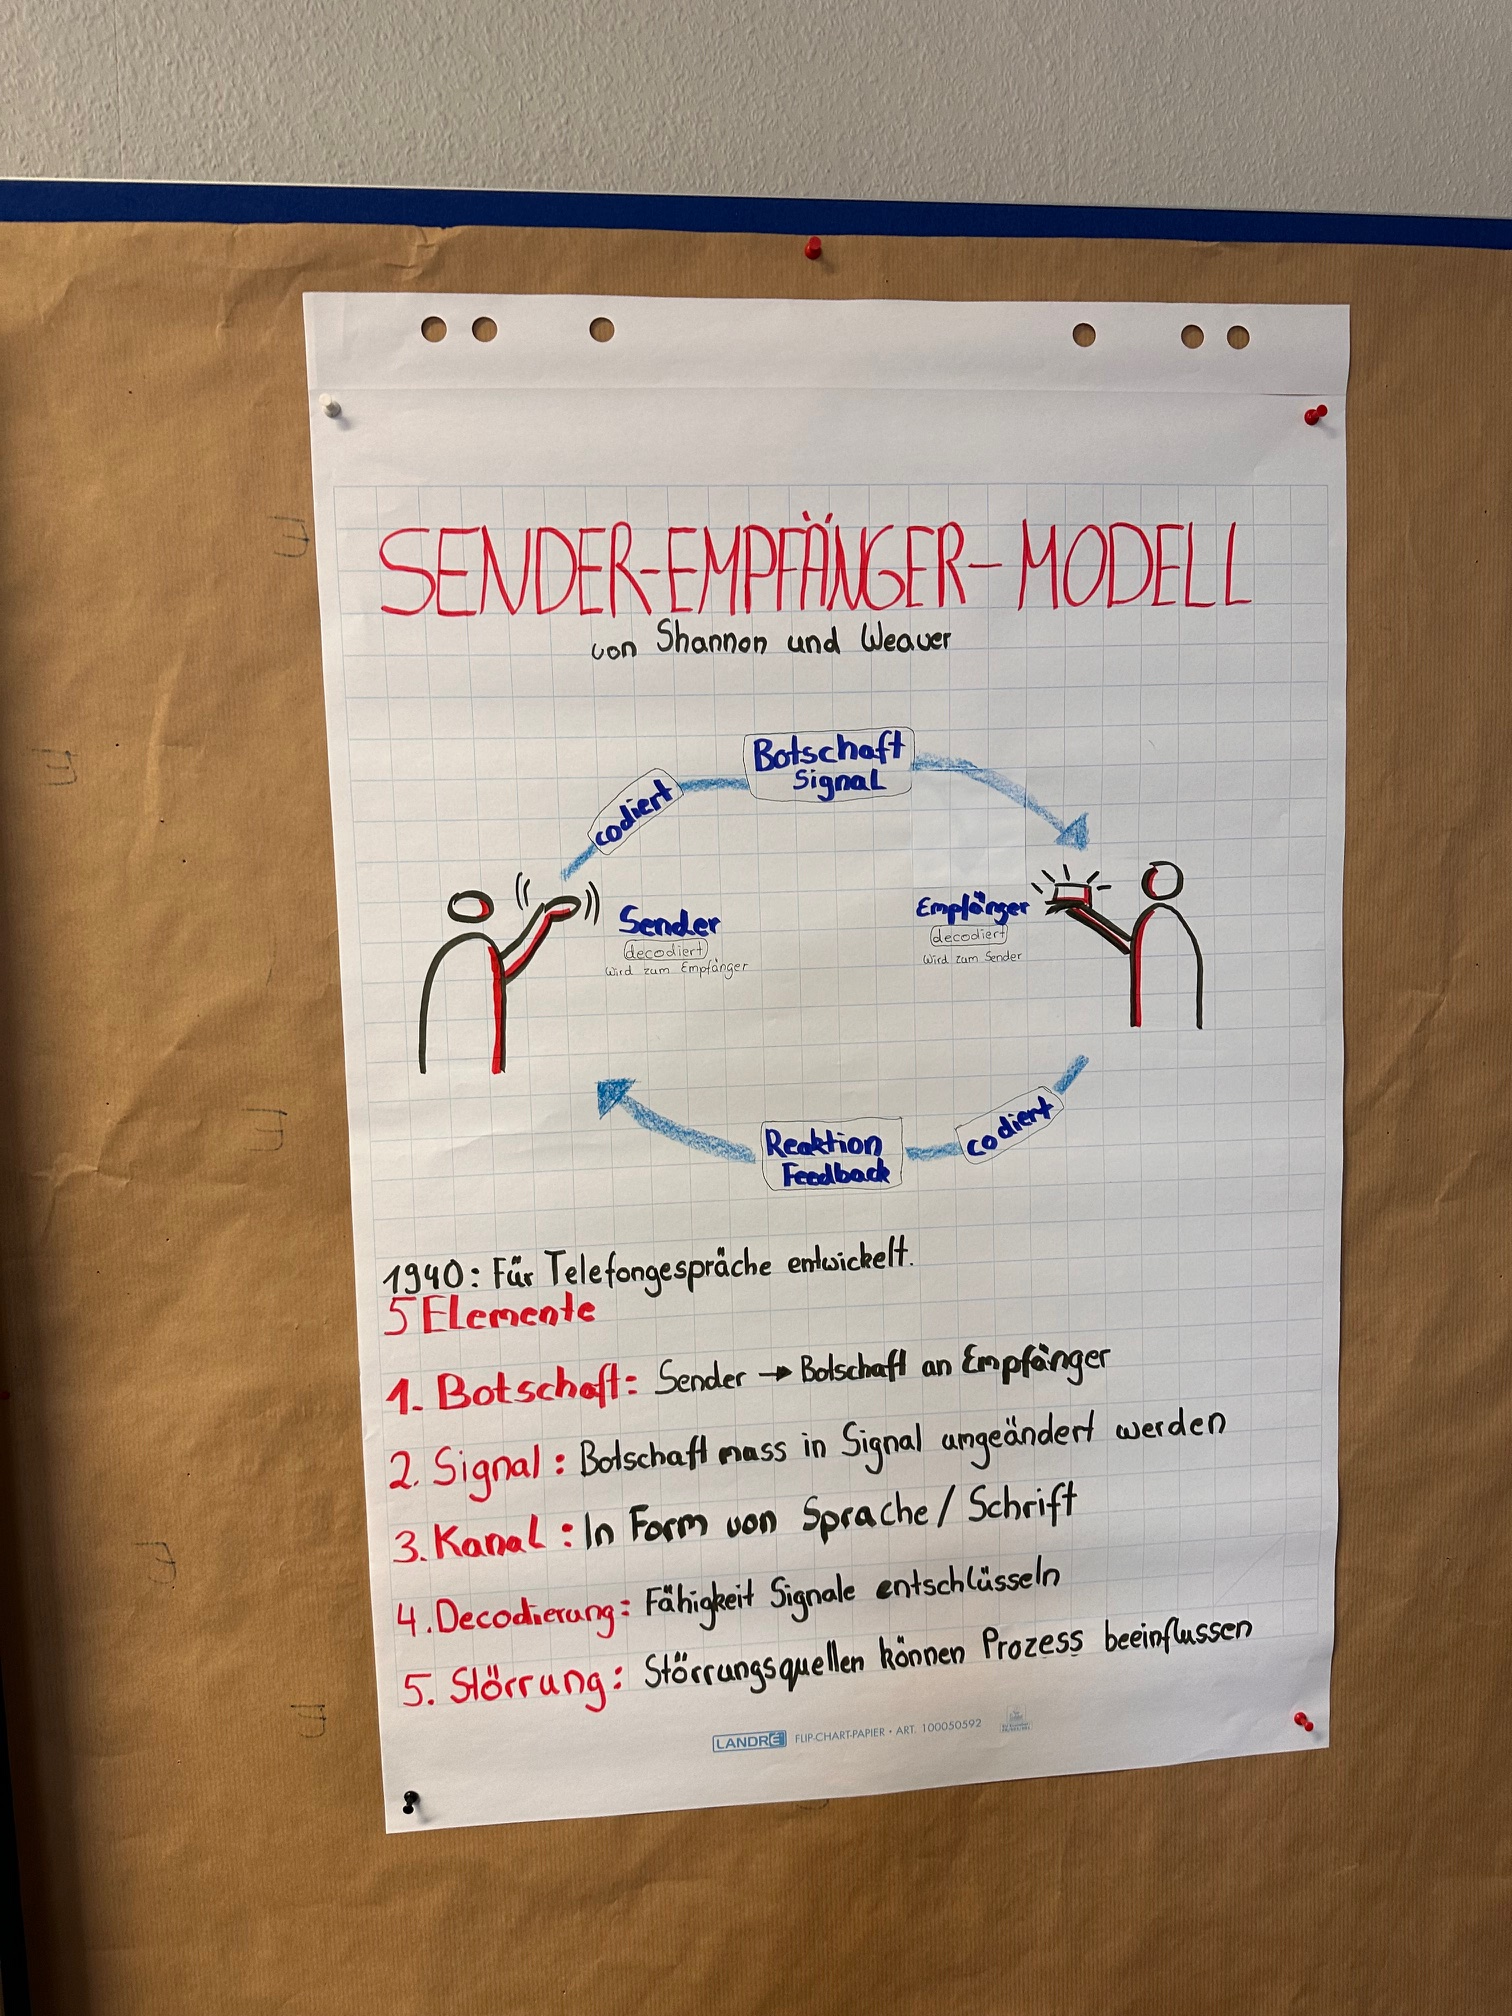 SENDER-EMPFÄNGER-MODELL
von Shannon und Weaver
Botschaft
Signal
codiert
Sender
decodiert
wird zum Empfänger
Empfänger
decodiert
wird zum Sender
codiert
Reaktion
Feedback
1940: Für Telefongespräche entwickelt.
5 Elemente
1. Botschaft: Sender → Botschaft an Empfänger
2. Signal: Botschaft muss in Signal umgeändert werden
3. Kanal: In Form von Sprache / Schrift
4. Decodierung: Fähigkeit Signale entschlüsseln
5. Störrung: Störrungsquellen können Prozess beeinflussen
LANDRÉ FLIP-CHART-PAPIER • ART. 100050592